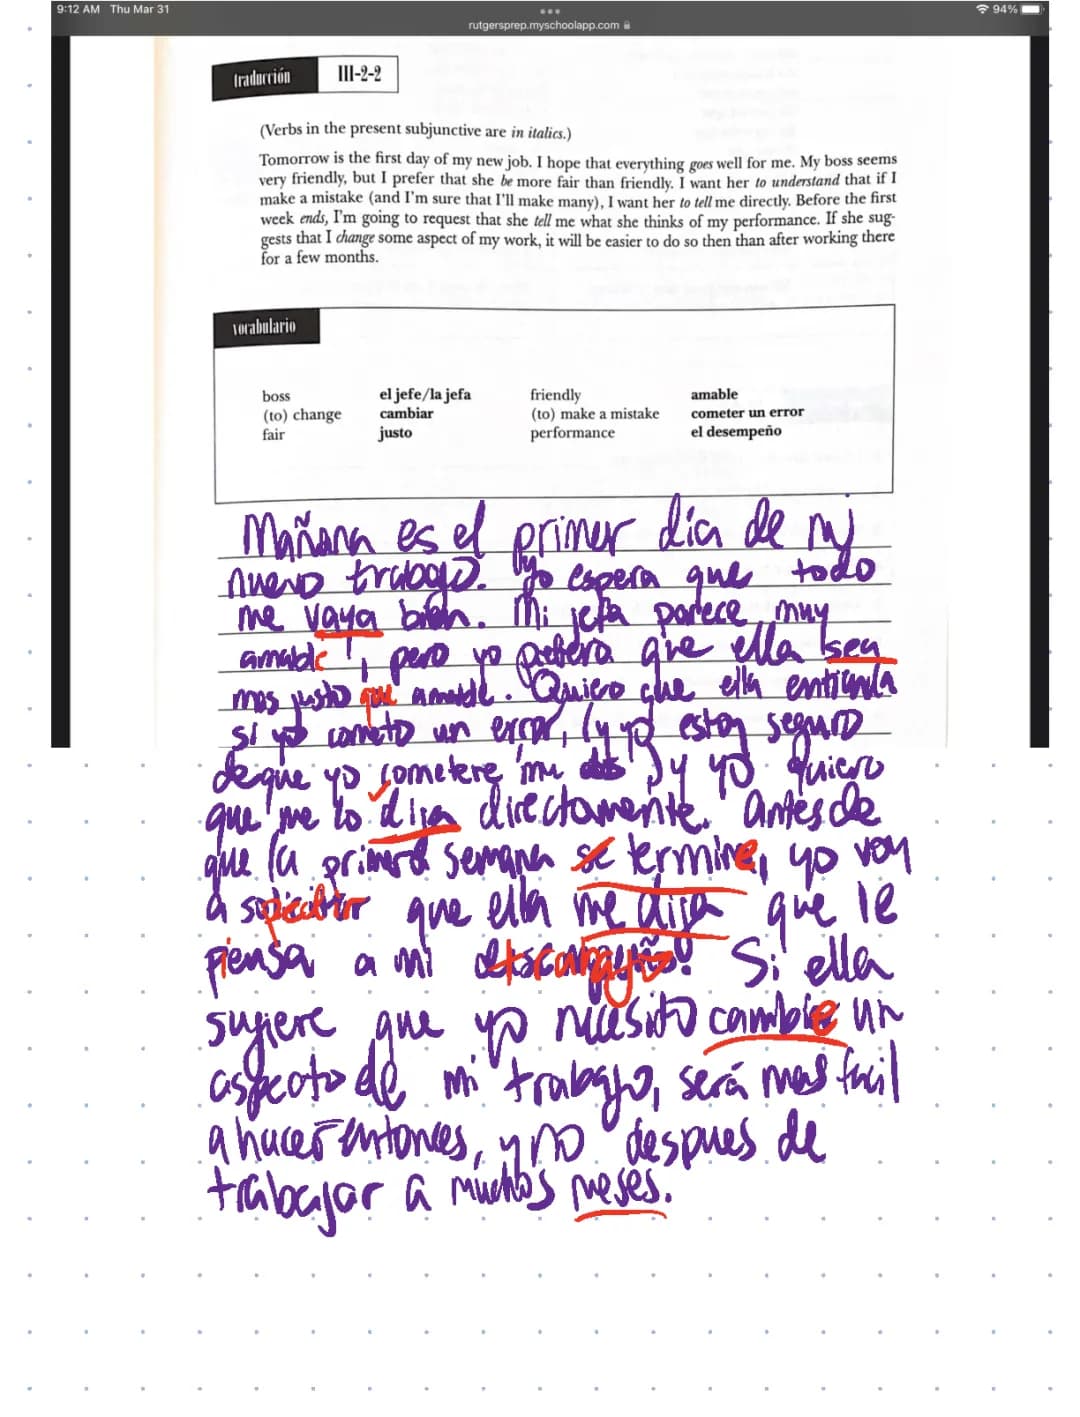 9:12 AM Thu Mar 31
rutgersprep.myschoolapp.com
94%
traducción III-2-2
(Verbs in the present subjunctive are in italics.)
Tomorrow is the first day of my new job. I hope that everything goes well for me. My boss seems
very friendly, but I prefer that she be more fair than friendly. I want her to understand that if I
make a mistake (and I'm sure that I'll make many), I want her to tell me directly. Before the first
week ends, I'm going to request that she tell me what she thinks of my performance. If she sug-
gests that I change some aspect of my work, it will be easier to do so then than after working there
for a few months.
vocabulario
boss el jefe/la jefa friendly amable
(to) change cambiar (to) make a mistake cometer un error
fair justo performance el desempeño
Mañana es el primer día de mi
nuevo trabajo. Yo espera que todo
me vaya bien. Mi jefa parece muy
amable, pero yo prefera que ella sea
mas justo que amable. Quiero que ella entienda
si yo cometo un error, (y yo estoy seguro
de que yo cometere) y yo quiero
que me lo diga directamente. Antes de
que la primera semana se termine, yo voy
a que ella me diga que le
piensa a mi Si ella
sugiere que yo necesito cambie un
aspecto de mi trabajo, será mas facil
a hacer entonces, y no despues de
trabajar a muchos meses.